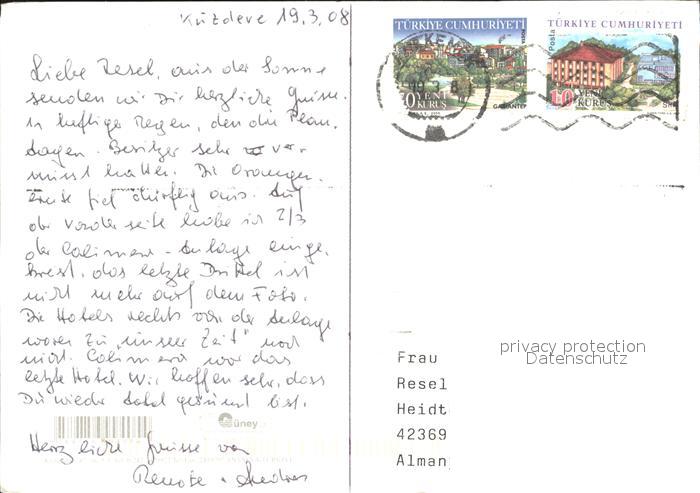 Kızdere 19.3.08
Liebe Resel, aus der Sonne
senden wir Dir herzliche Grüsse.
n heftiger Regen, den die Plan-
tagen-Besitzer sehr ver-
misst hatten. Die Orangen-
ernte fiel dürftig aus. Auf
der Vorderseite habe ich 2/3
der Calimera-Anlage einge-
kreist, das letzte Drittel ist
nicht mehr auf dem Foto.
Die Hotels rechts von der Anlage
waren zu "unserer Zeit" noch
nicht. Calimera war das
letzte Hotel. Wir hoffen sehr, dass
Du wieder total gesund bist.
Herzliche Grüsse von
Renate + Andreas
güney
TÜRKİYE CUMHURİYETİ
POSTA
YENİ
KURUŞ
GAZİANTEP
TÜRKİYE CUMHURİYETİ
Posta
10 YENİ
KURUŞ
privacy protection
Datenschutz
Frau
Resel
Heidt
42369
Alman